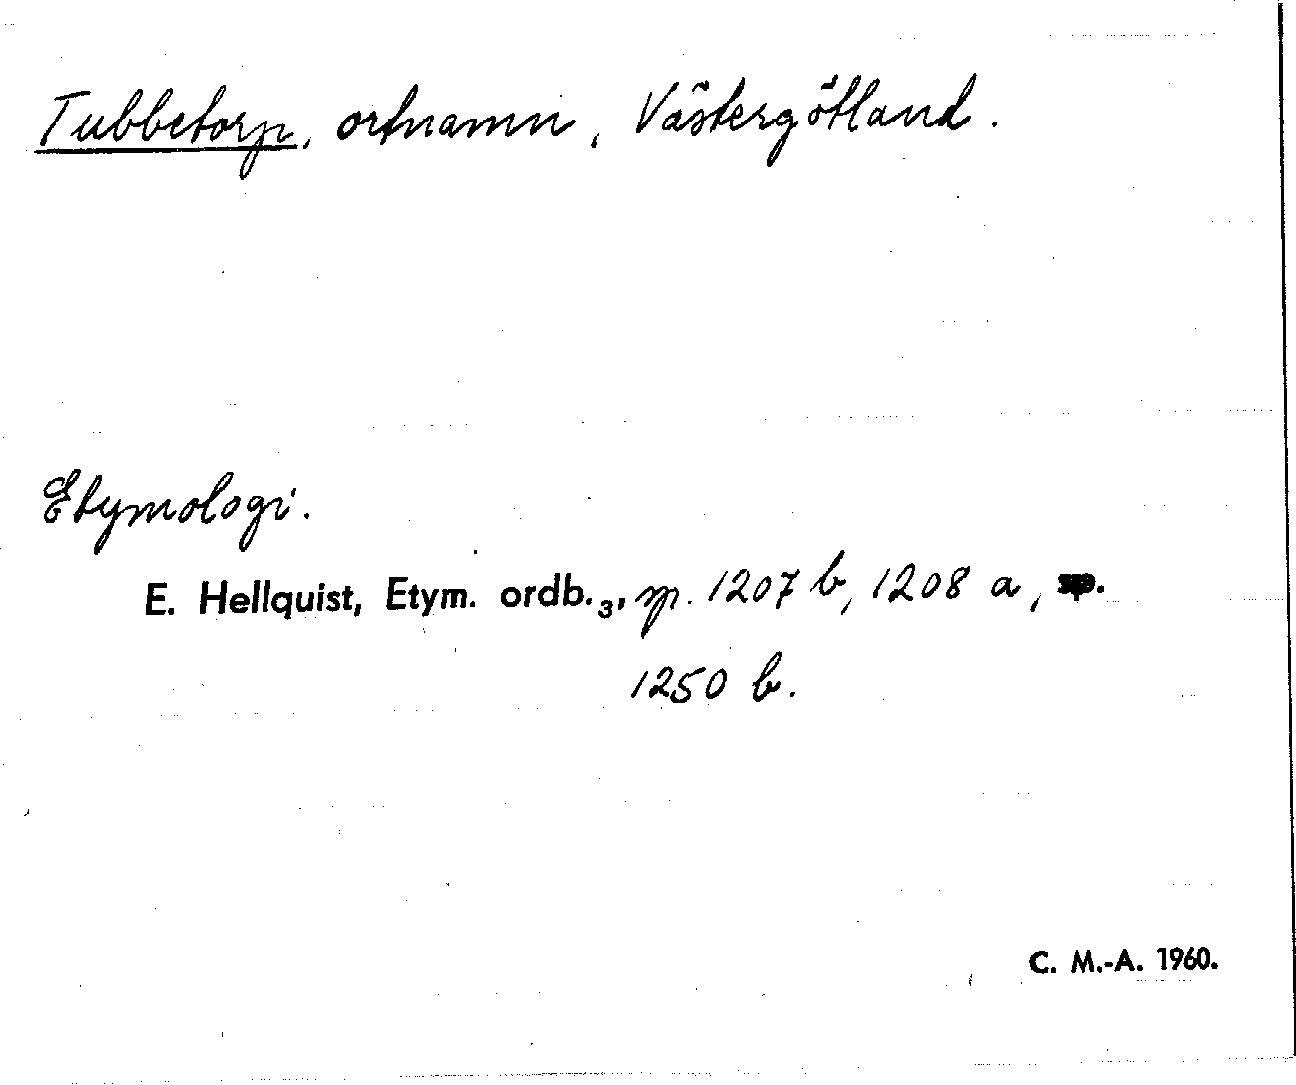 Tubbetorp, ortnamn, Västergötland.
Etymologi.
E. Hellquist, Etym. ordb.₃, sp. 1207 b, 1208 a, sp.
1250 b.
C. M.-A. 1960.